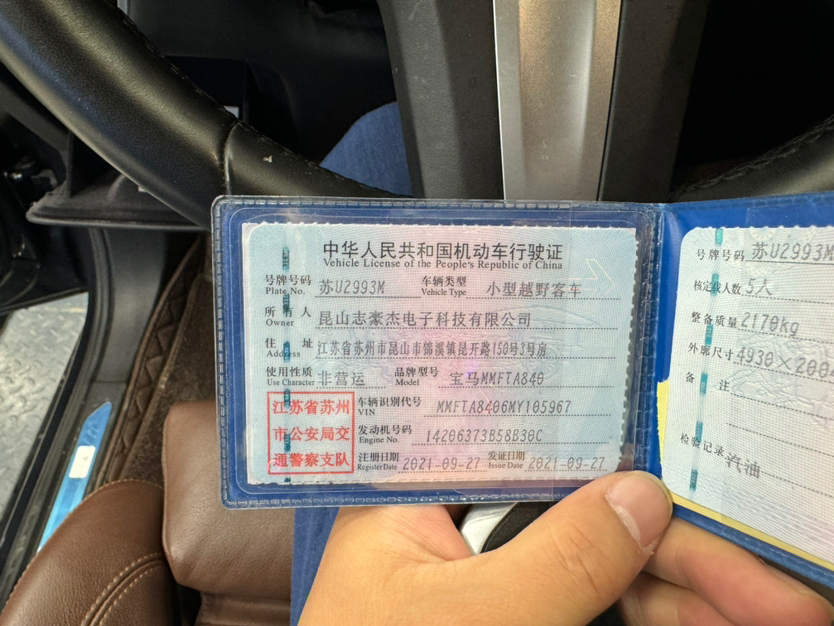 中华人民共和国机动车行驶证
Vehicle License of the People's Republic of China
号牌号码 Plate No. 苏U2993M 车辆类型 Vehicle Type 小型越野客车
所有人 Owner 昆山志豪杰电子科技有限公司
住址 Address 江苏省苏州市昆山市锦溪镇昆开路150号3号房
使用性质 Use Character 非营运 品牌型号 Model 宝马MMFTA840
江苏省苏州
市公安局交
通警察支队
车辆识别代号 VIN MMFTA8406MY105967
发动机号码 Engine No. 14206373B58B30C
注册日期 Register Date 2021-09-27 发证日期 Issue Date 2021-09-27
号牌号码 苏U2993M
核定载人数 5人
整备质量 2170kg
外廓尺寸 4930×200
备注
检验记录 汽油